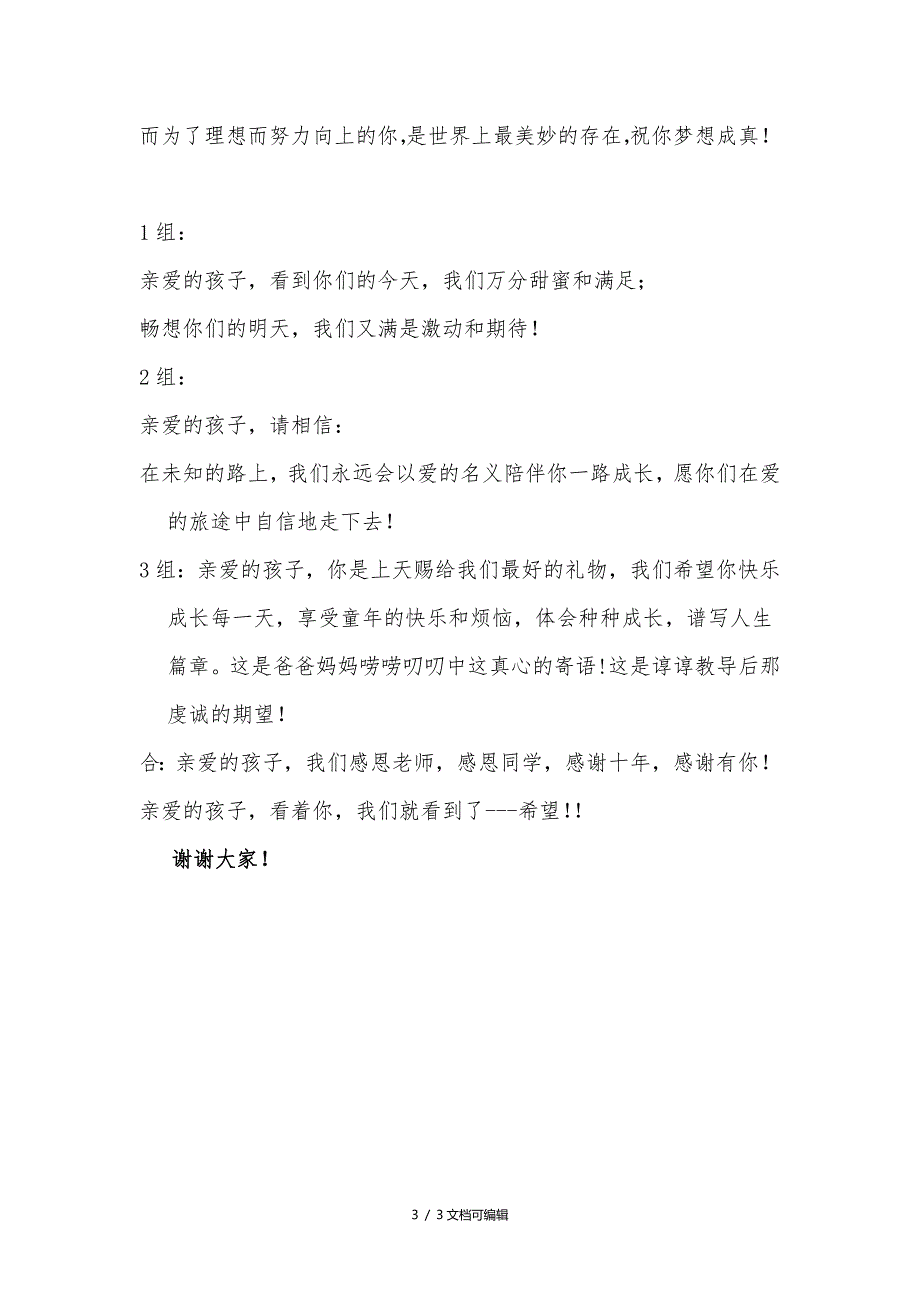 而为了理想而努力向上的你,是世界上最美妙的存在,祝你梦想成真！
1 组：
亲爱的孩子，看到你们的今天，我们万分甜蜜和满足；
畅想你们的明天，我们又满是激动和期待！
2 组：
亲爱的孩子，请相信：
在未知的路上，我们永远会以爱的名义陪伴你一路成长，愿你们在爱
的旅途中自信地走下去！
3 组：亲爱的孩子，你是上天赐给我们最好的礼物，我们希望你快乐
成长每一天，享受童年的快乐和烦恼，体会种种成长，谱写人生
篇章。这是爸爸妈妈唠唠叨叨中这真心的寄语!这是谆谆教导后那
虔诚的期望！
合：亲爱的孩子，我们感恩老师，感恩同学，感谢十年，感谢有你！
亲爱的孩子，看着你，我们就看到了---希望！！
谢谢大家！
3 / 3文档可编辑